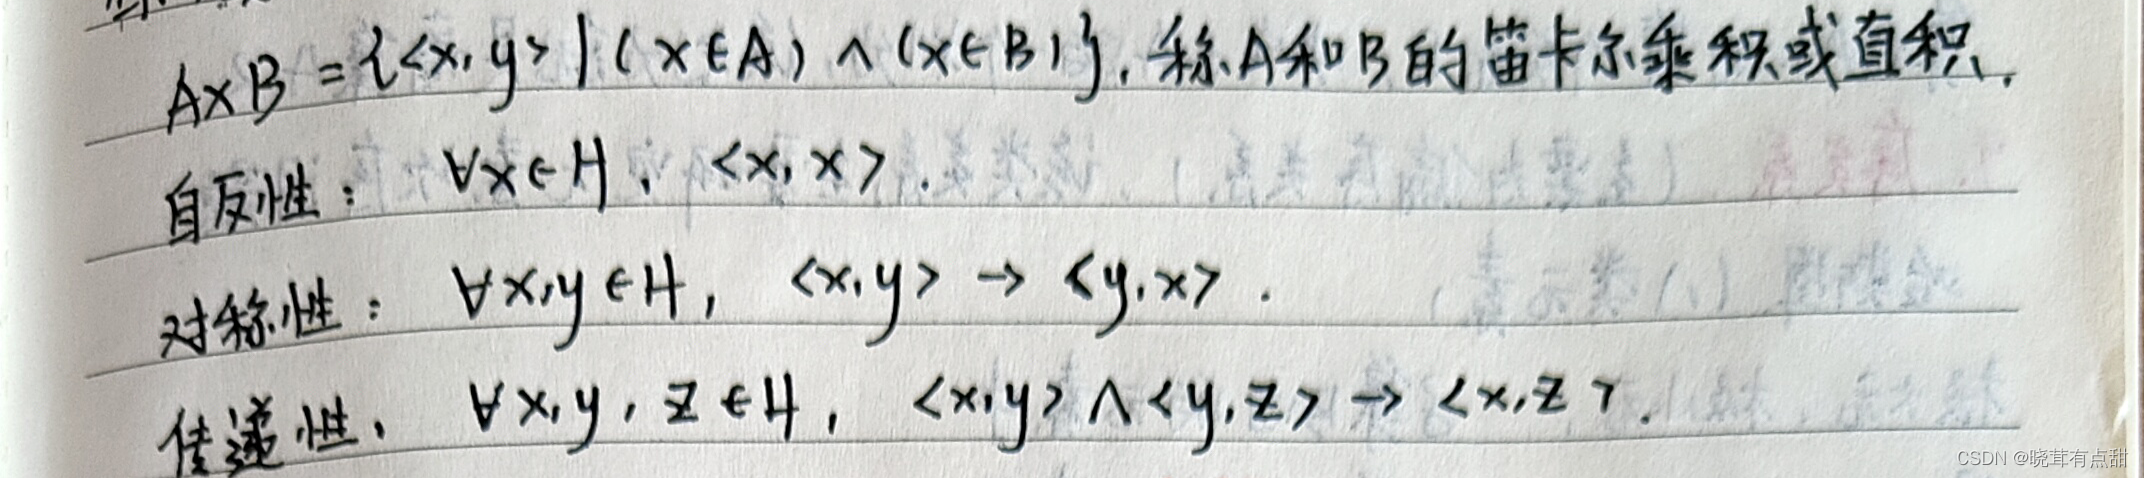 A×B = {<x, y> | (x∈A) ∧ (x∈B)}, 称A和B的笛卡尔乘积或直积.
自反性: ∀x∈H, <x, x>.
对称性: ∀x,y∈H, <x,y> → <y,x>.
传递性, ∀x,y,z∈H, <x,y> ∧ <y,z> → <x,z>.
CSDN @晓茸有点甜